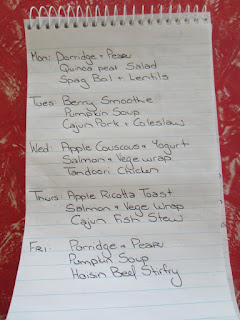 Mon: Porridge + Pear
Quinoa peat Salad
Spag Bol + Lentils
Tues: Berry Smoothie
Pumpkin Soup
Cajun Pork + Coleslaw
Wed: Apple Couscous + Yogurt
Salmon + Vege wrap
Tandoori Chicken
Thurs: Apple Ricotta Toast
Salmon + Vege Wrap
Cajun Fish Stew
Fri: Porridge + Pear
Pumpkin Soup
Hoisin Beef Stirfry